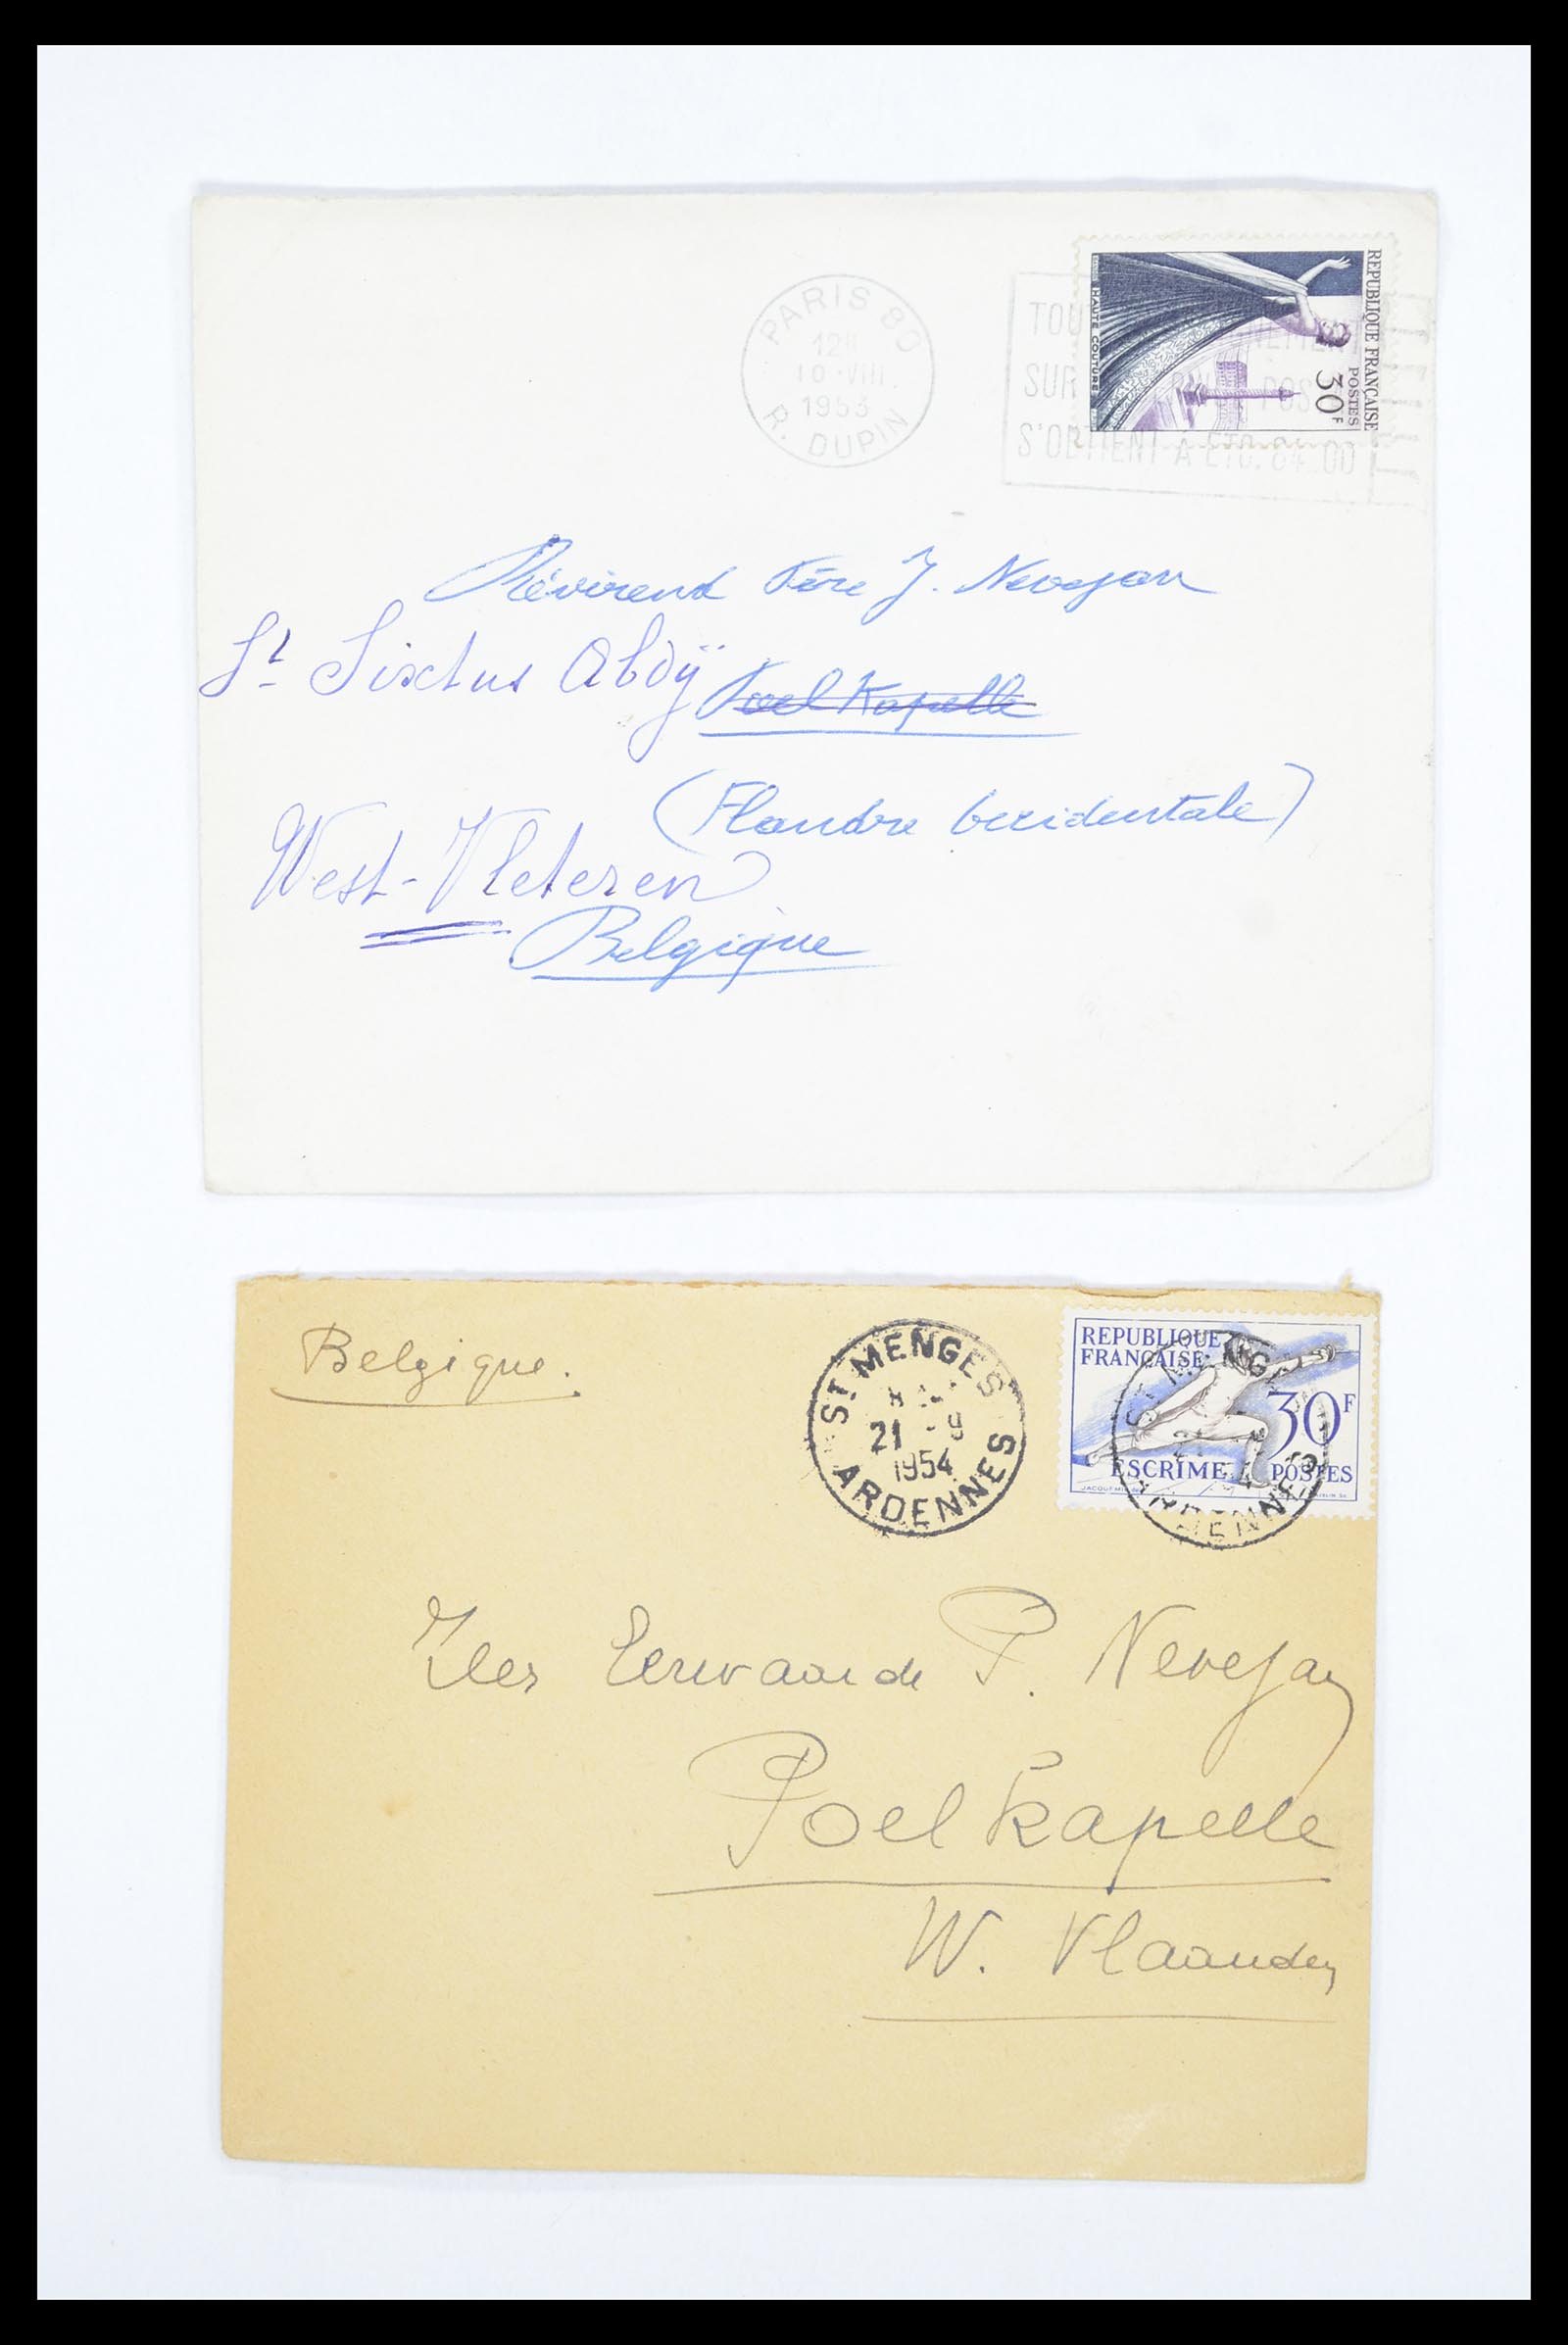 PARIS 80
12H
10 VIII
1953
R. DUPIN
TOU
SUR
S'OBTIENT A ETG. 84.00
REPUBLIQUE FRANÇAISE
POSTES
30F
HAUTE COUTURE
Révérend Père J. Nevejan
St Sixtus Abdÿ
Poelkapelle
(Flandre Occidentale)
West-Vleteren
Belgique
Belgique.
ST MENGES
21 - 9
1954
ARDENNES
REPUBLIQUE
FRANÇAISE
30F
ESCRIME
POSTES
ARDENNES
Zeer Eerwaarde P. Nevejan
Poelkapelle
W. Vlaanderen